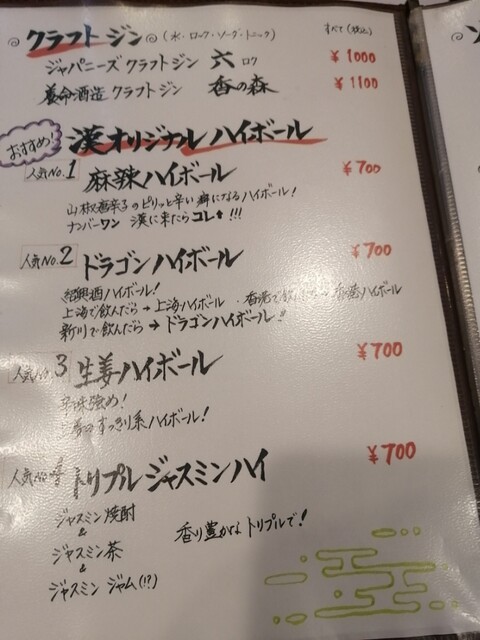 クラフトジン (水・ロック・ソーダ・トニック) すべて(税込)
ジャパニーズクラフトジン 六 ロク ¥1000
養命酒造 クラフトジン 香の森 ¥1100
おすすめ! 漢オリジナルハイボール
人気No.1 麻辣ハイボール ¥700
山椒唐辛子のピリッと辛い癖になるハイボール!
ナンバーワン 漢に来たらコレ!!!
人気No.2 ドラゴンハイボール ¥700
紹興酒ハイボール!
上海で飲んだら→上海ハイボール・香港で飲 香港ハイボール
新川で飲んだら→ドラゴンハイボール!!
人気No.3 生姜ハイボール ¥700
強め!
すっきり系ハイボール!
人気No.4 トリプルジャスミンハイ ¥700
ジャスミン焼酎
&
香り豊かなトリプルで!
ジャスミン茶
&
ジャスミン ジャム(!?)